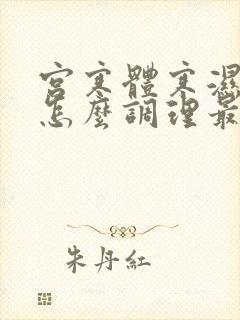 宮寒體寒濕
怎麼調理最
朱丹紅